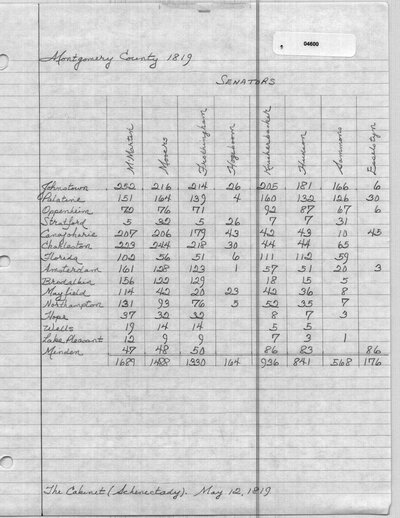 04600
Montgomery County 1819
SENATORS
M Martin Moores Frothingham Hogeboom Knickerbacker Hudson Sammons Esselstyn
Johnstown 252 216 214 26 205 181 166 6
Palatine 151 164 139 4 160 132 126 30
Oppenheim 70 76 71 92 87 67 6
Stratford 5 32 5 26 7 7 31
Canajoharie 207 206 179 43 42 43 10 45
Charleston 223 244 218 30 44 44 65
Florida 102 56 51 6 111 112 59
Amsterdam 161 128 123 1 57 51 20 3
Broadalbin 156 122 129 18 15 5
Mayfield 114 42 20 23 42 36 8
Northampton 131 93 76 5 52 35 7
Hope 37 32 32 8 7 3
Wells 19 14 14 5 5
Lake Pleasant 12 9 9 7 3 1
Minden 47 48 50 86 83 86
1689 1488 1330 164 936 841 568 176
The Cabinet (Schenectady). May 12, 1819